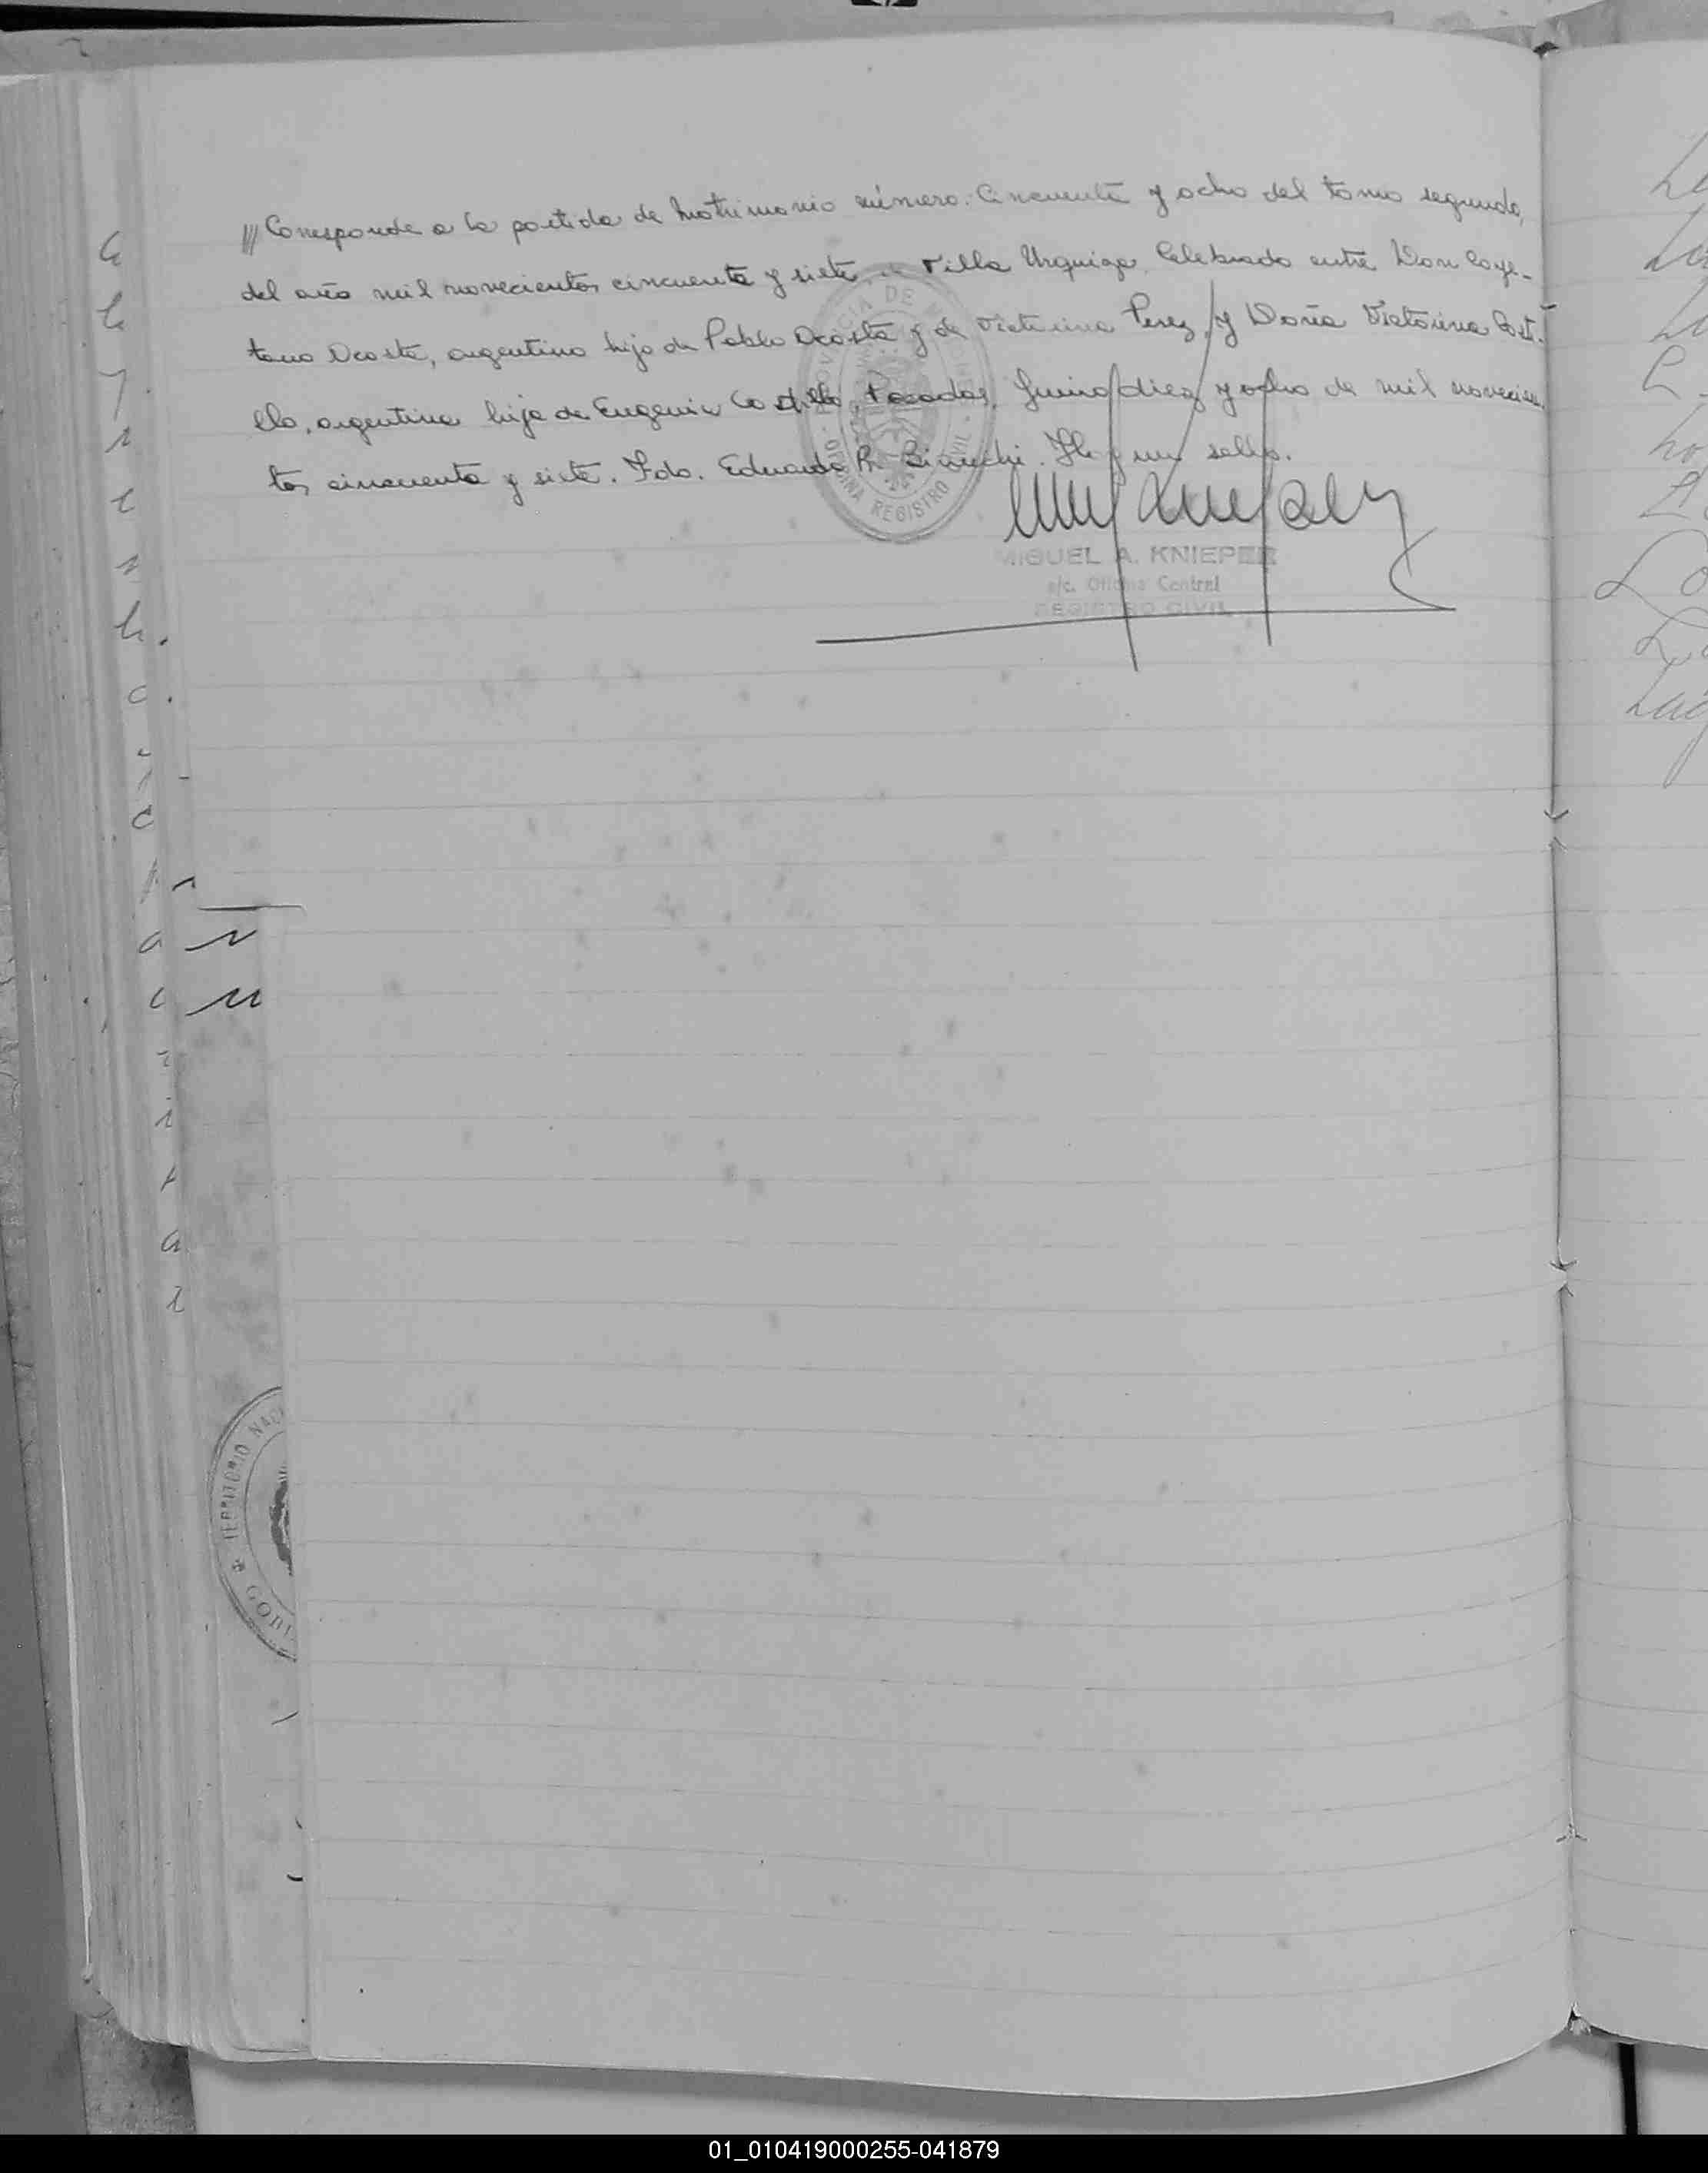 /// Corresponde a la partida de Matrimonio número. Cincuenta y ocho del tomo segundo,
del año mil novecientos cincuenta y siete, de Villa Urquiza, Celebrado entre Don Caye-
tano Acosta, argentino hijo de Pablo Acosta y de Victorina Perez, y Doña Victorina Casti-
llo, argentina hija de Eugenia Castillo, Posadas, Junio diez y ocho de mil novecien-
tos cincuenta y siete. Fdo. Eduardo R. Bianchi. Hay un sello.
PROVINCIA DE
REGISTRO CIVIL
MIGUEL A. KNIEPER
a/c. Oficina Central
REGISTRO CIVIL
TERRITORIO NAC
GOBI
01_010419000255-041879